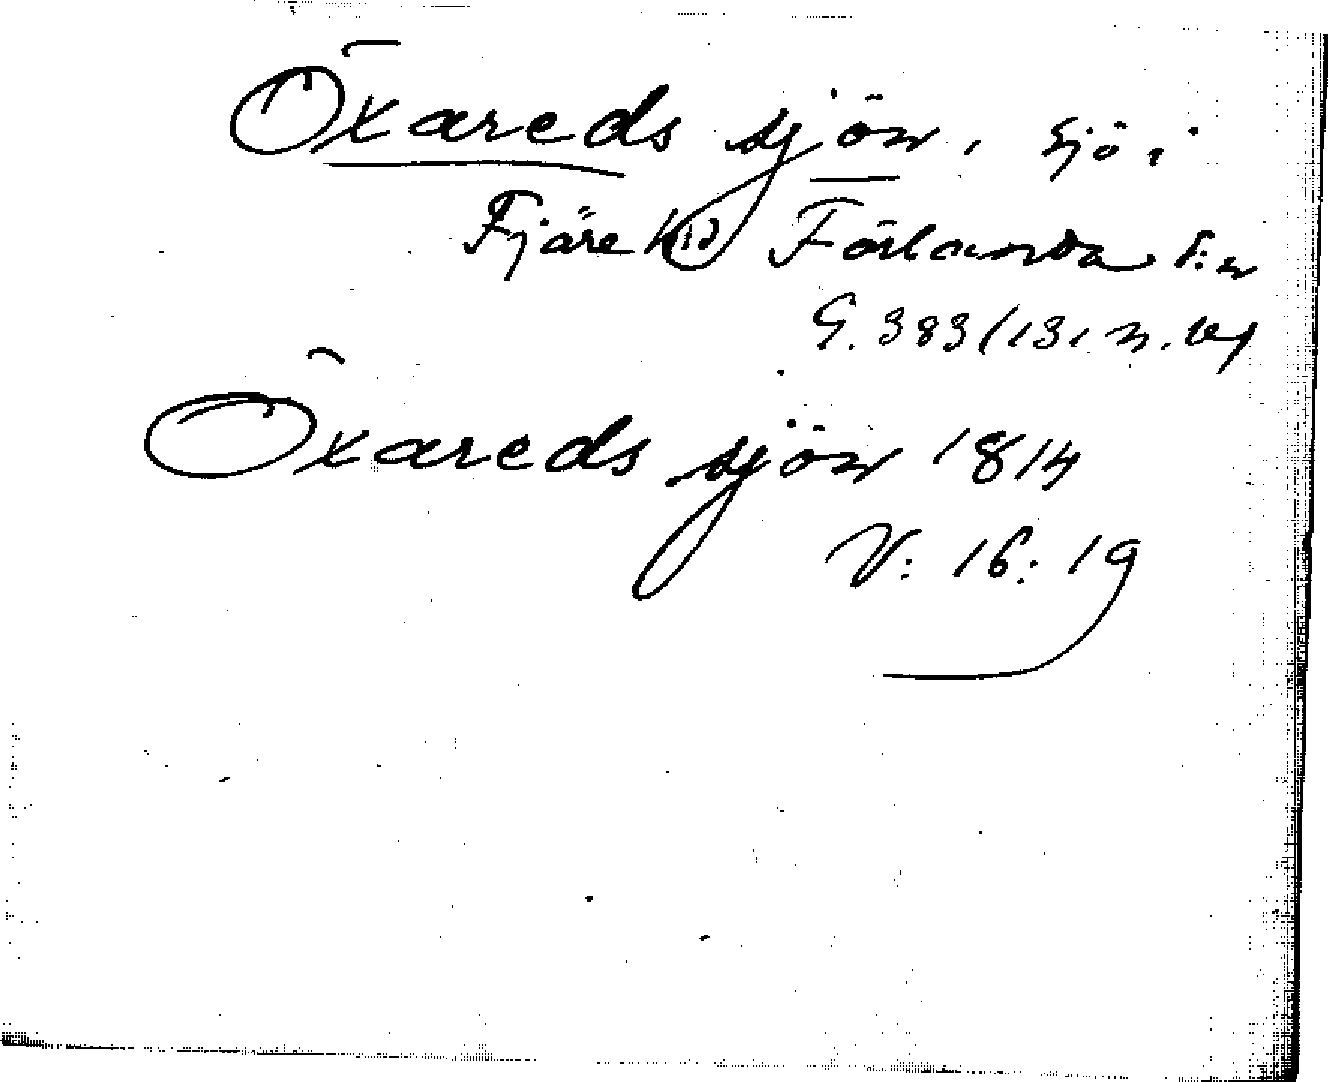 Öxareds sjön, sjö i
Fjäre hd Förlanda s:n
G. 383/131 n.
Öxareds sjön 1814
V: 16: 19